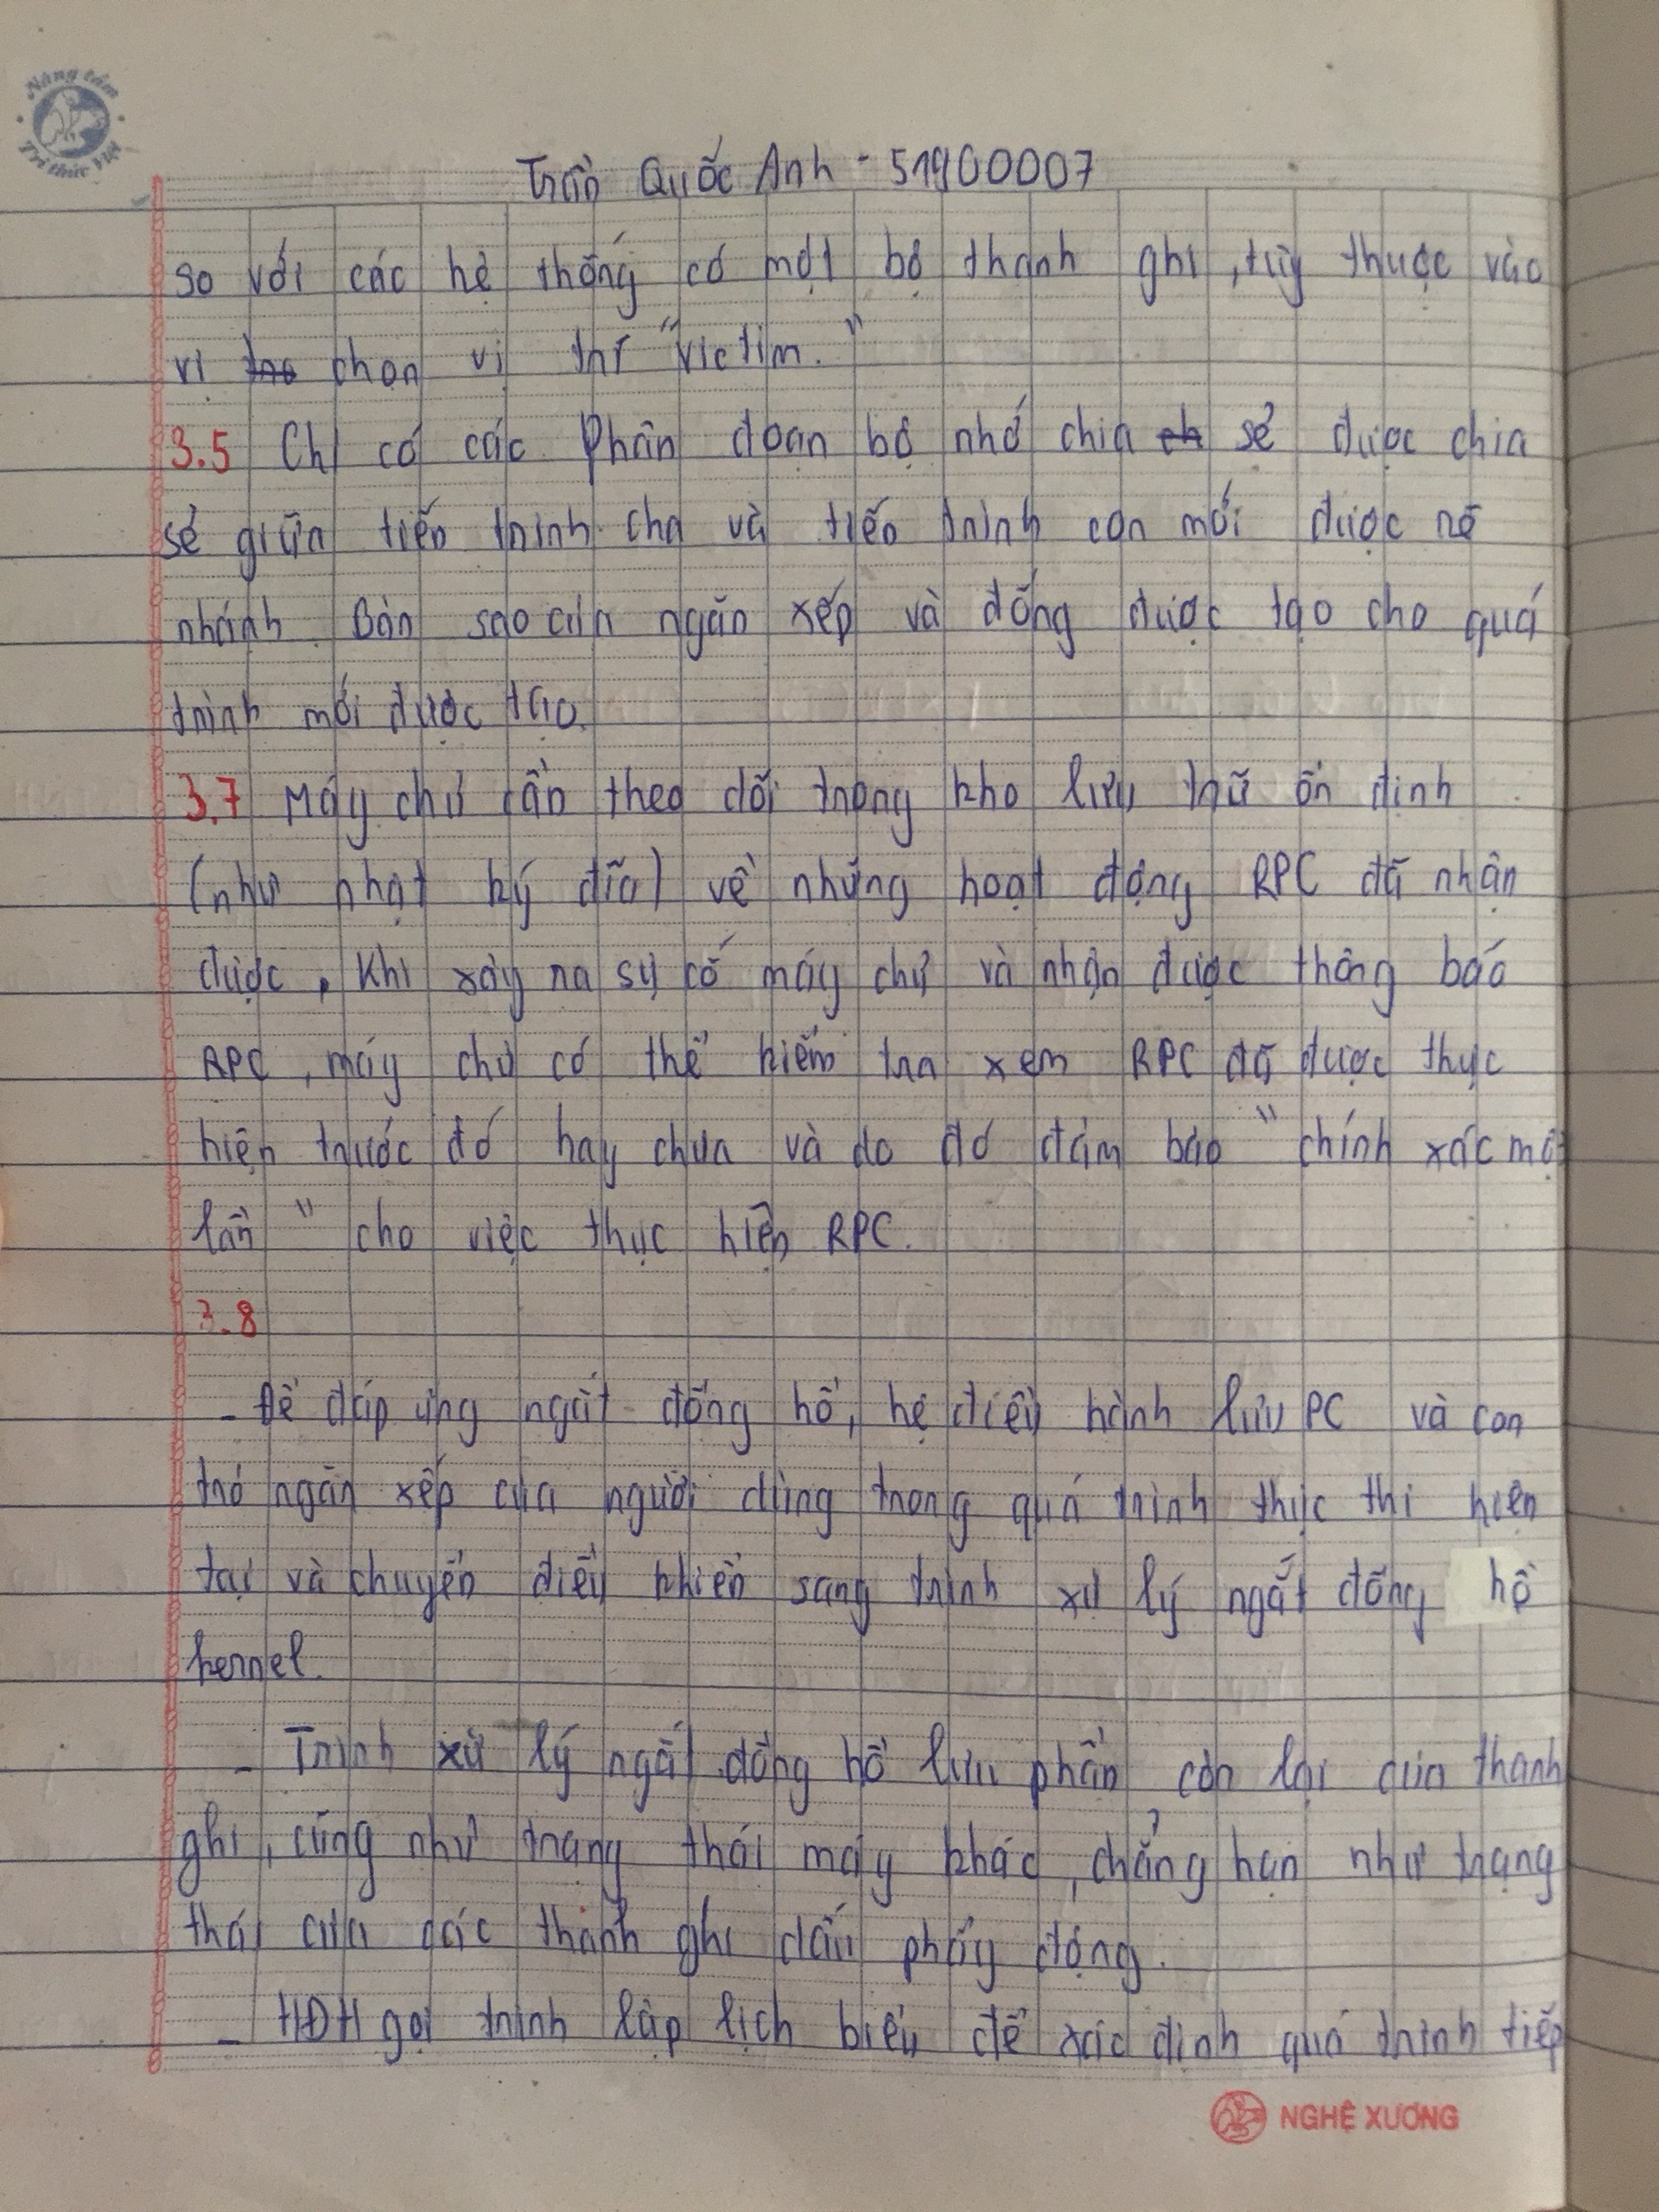 Nâng tầm
Tri thức Việt
Trần Quốc Anh - 51900007
so với các hệ thống có một bộ thanh ghi, tùy thuộc vào
vị chọn vị trí "victim."
3.5 Chỉ có các Phân đoạn bộ nhớ chia sẻ được chia
sẻ giữa tiến trình cha và tiến trình con mới được rẽ
nhánh. Bản sao của ngăn xếp và đống được tạo cho quá
trình mới được tạo.
3.7 Máy chủ cần theo dõi trong kho lưu trữ ổn định
(như nhật ký đĩa) về những hoạt động RPC đã nhận
được. Khi xảy ra sự cố máy chủ và nhận được thông báo
RPC, máy chủ có thể kiểm tra xem RPC đã được thực
hiện trước đó hay chưa và do đó đảm bảo "chính xác một
lần" cho việc thực hiện RPC.
3.8
- Để đáp ứng ngắt đồng hồ, hệ điều hành lưu PC và con
trỏ ngăn xếp của người dùng trong quá trình thực thi hiện
tại và chuyển điều khiển sang trình xử lý ngắt đồng hồ
kernel.
- Trình xử lý ngắt đồng hồ lưu phần còn lại của thanh
ghi, cũng như trạng thái máy khác, chẳng hạn như trạng
thái của các thanh ghi dấu phẩy động.
- HĐH gọi trình lập lịch biểu để xác định quá trình tiếp
NGHỆ XƯƠNG